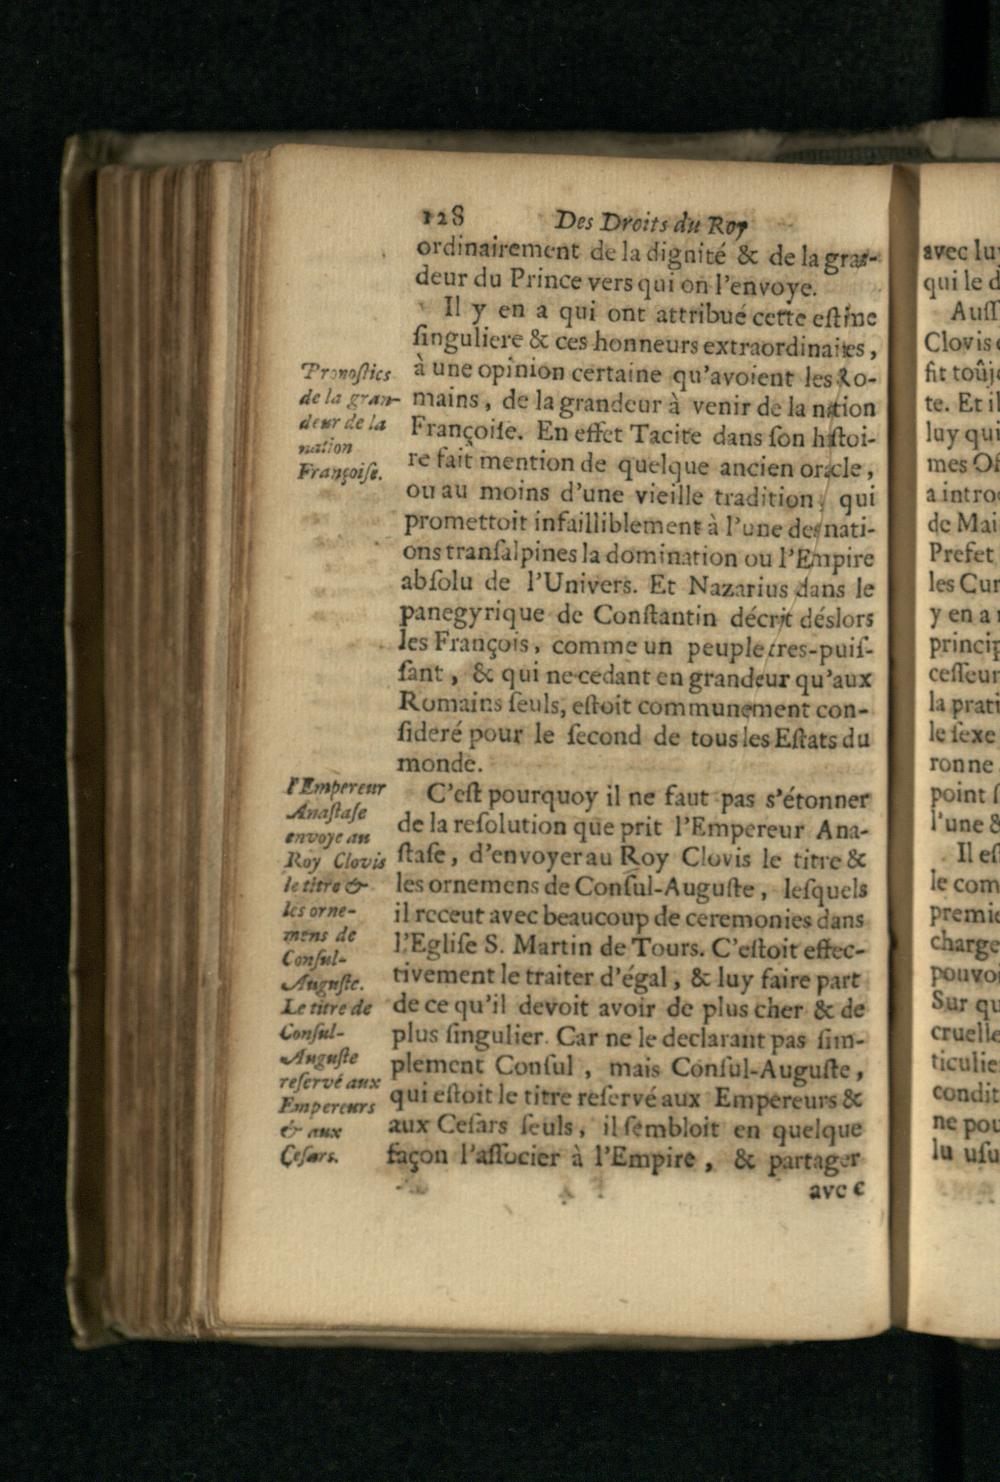 128 Des Droits du Roy
ordinairement de la dignité & de la gran-
deur du Prince vers qui on l'envoye.
Il y en a qui ont attribué cette eſtime
ſinguliere & ces honneurs extraordinaires,
à une opinion certaine qu'avoient les Ro-
mains, de la grandeur à venir de la nation
Françoiſe. En effet Tacite dans ſon hiſtoi-
re fait mention de quelque ancien oracle,
ou au moins d'une vieille tradition, qui
promettoit infailliblement à l'une des nati-
ons tranſalpines la domination ou l'Empire
abſolu de l'Univers. Et Nazarius dans le
panegyrique de Conſtantin décrit déslors
les François, comme un peuple tres-puiſ-
ſant, & qui ne cedant en grandeur qu'aux
Romains ſeuls, eſtoit communement con-
ſideré pour le ſecond de tous les Eſtats du
monde.
C'eſt pourquoy il ne faut pas s'étonner
de la reſolution que prit l'Empereur Ana-
ſtaſe, d'envoyer au Roy Clovis le titre &
les ornemens de Conſul-Auguſte, leſquels
il receut avec beaucoup de ceremonies dans
l'Egliſe S. Martin de Tours. C'eſtoit effec-
tivement le traiter d'égal, & luy faire part
de ce qu'il devoit avoir de plus cher & de
plus ſingulier. Car ne le declarant pas ſim-
plement Conſul, mais Conſul-Auguſte,
qui eſtoit le titre reſervé aux Empereurs &
aux Ceſars ſeuls, il ſembloit en quelque
façon l'aſſocier à l'Empire, & partager
avec
Pronoſtics
de la gran-
deur de la
nation
Françoiſe.
l'Empereur
Anaſtaſe
envoye au
Roy Clovis
le titre &
les orne-
mens de
Conſul-
Auguſte.
Le titre de
Conſul-
Auguſte
reſervé aux
Empereurs
& aux
Ceſars.
avec luy
qui le d
Auſſ
Clovis
fit toûj
te. Et il
luy qui
mes Of
a intro
de Mai
Prefet
les Cur
y en a
princip
ceſſeur
la prati
le ſexe
ronne
point ſ
l'une &
Il eſ
le com
premie
charge
pouvoi
Sur qu
cruelle
ticulie
condit
ne pou
lu uſu